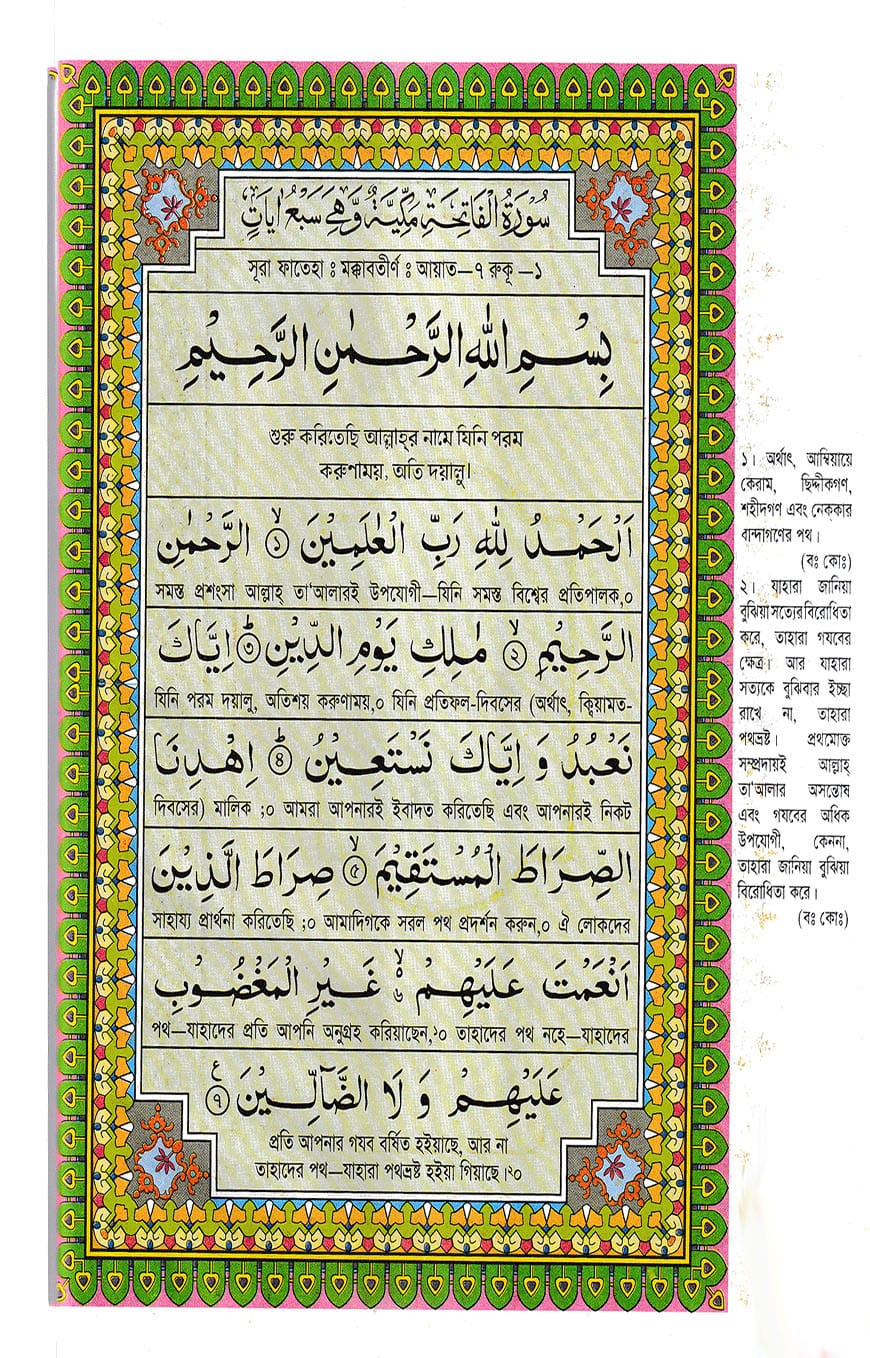 سُوْرَةُ الْفَاتِحَةِ مَكِّيَّةٌ وَّهِيَ سَبْعُ اٰيَاتٍ
সূরা ফাতেহা ঃ মক্কাবতীর্ণ ঃ আয়াত—৭ রুকূ —১
بِسْمِ اللّٰهِ الرَّحْمٰنِ الرَّحِيْمِ
শুরু করিতেছি আল্লাহ্‌র নামে যিনি পরম
করুণাময়, অতি দয়ালু।
اَلْحَمْدُ لِلّٰهِ رَبِّ الْعٰلَمِيْنَ ۙ ১ الرَّحْمٰنِ
সমস্ত প্রশংসা আল্লাহ্ তা'আলারই উপযোগী—যিনি সমস্ত বিশ্বের প্রতিপালক,০
الرَّحِيْمِ ۙ ২ مٰلِكِ يَوْمِ الدِّيْنِ ؕ ৩ اِيَّاكَ
যিনি পরম দয়ালু, অতিশয় করুণাময়,০ যিনি প্রতিফল-দিবসের (অর্থাৎ, ক্বিয়ামত-
نَعْبُدُ وَ اِيَّاكَ نَسْتَعِيْنُ ؕ ৪ اِهْدِنَا
দিবসের) মালিক ;০ আমরা আপনারই ইবাদত করিতেছি এবং আপনারই নিকট
الصِّرَاطَ الْمُسْتَقِيْمَ ۙ ৫ صِرَاطَ الَّذِيْنَ
সাহায্য প্রার্থনা করিতেছি ;০ আমাদিগকে সরল পথ প্রদর্শন করুন,০ ঐ লোকদের
اَنْعَمْتَ عَلَيْهِمْ ۙ ৬ غَيْرِ الْمَغْضُوْبِ
পথ—যাহাদের প্রতি আপনি অনুগ্রহ করিয়াছেন,১০ তাহাদের পথ নহে—যাহাদের
عَلَيْهِمْ وَ لَا الضَّآلِّيْنَ ع ৭
প্রতি আপনার গযব বর্ষিত হইয়াছে, আর না
তাহাদের পথ—যাহারা পথভ্রষ্ট হইয়া গিয়াছে।২০
১। অর্থাৎ, আম্বিয়ায়ে
কেরাম, ছিদ্দীকগণ,
শহীদগণ এবং নেক্‌কার
বান্দাগণের পথ।
(বঃ কোঃ)
২। যাহারা জানিয়া
বুঝিয়া সত্যের বিরোধিতা
করে, তাহারা গযবের
ক্ষেত্র। আর যাহারা
সত্যকে বুঝিবার ইচ্ছা
রাখে না, তাহারা
পথভ্রষ্ট। প্রথমোক্ত
সম্প্রদায়ই আল্লাহ্
তা'আলার অসন্তোষ
এবং গযবের অধিক
উপযোগী, কেননা,
তাহারা জানিয়া বুঝিয়া
বিরোধিতা করে।
(বঃ কোঃ)